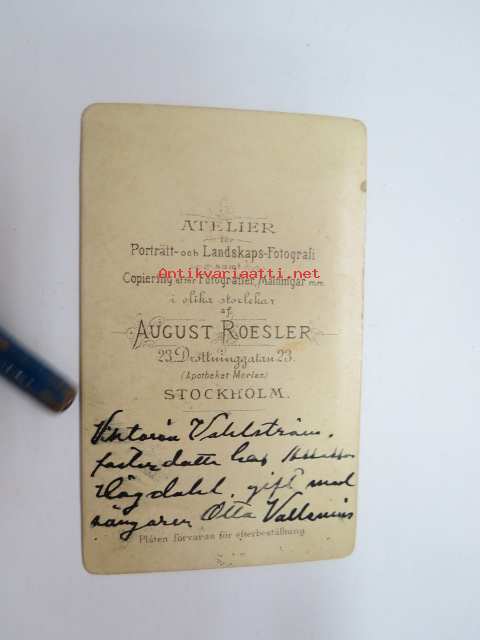 ATELIER
för
Porträtt- och Landskaps-Fotografi
samt
Antikvariaatti.net
Copiering efter Fotografier, Målningar m.m.
i olika storlekar
af
AUGUST ROESLER
23. Drottninggatan 23.
(Apotheket Morian)
STOCKHOLM.
Viktoria Vahlström,
faster dotter
Högdahl, gift med
sångaren Otto Vallenius
Plåten förvaras för efterbeställning.